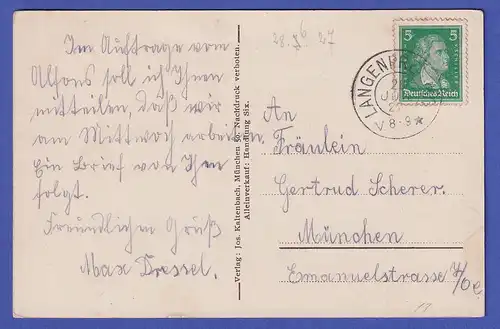 Im Auftrage vom
Alfons soll ich Ihnen
mitteilen, daß wir
am Mittwoch arbeiten.
Ein Brief von Ihm
folgt.
Freundlichen Grüß
Max Dressel.
Verlag: Jos. Kaltenbach, München 50. Nachdruck verboten.
Alleinverkauf: Handlung Six.
28. 6 27
5 5
Deutsches Reich
LANGEN
V 8-9 *
An
Fräulein
Gertrud Scherer.
München
Emanuelstrasse